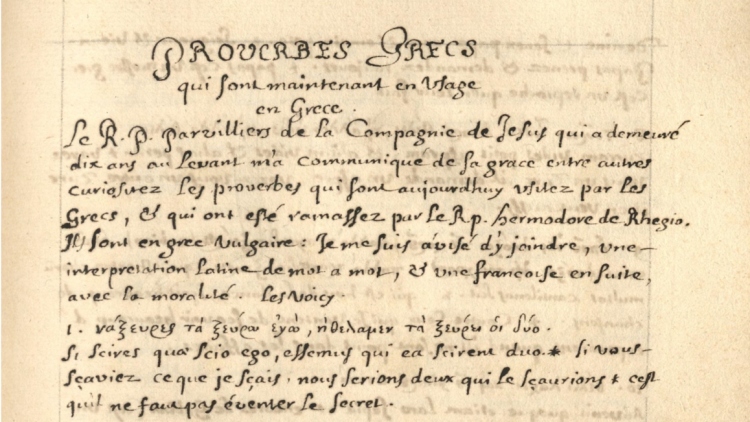 PROUERBES GRECS
qui sont maintenant en Vsage
en Grece.
Le R. P. Parvilliers de la Compagnie de Jesus qui a demeuré
dix ans au levant m'a communique de sa grace entre autres
curiositez les proverbes qui sont aujourdhuy vsitez par les
Grecs, & qui ont esté ramassez par le R.p. hermodore de Rhegio.
Ils sont en grec vulgaire : Je me suis avisé d'y joindre, une
interpretation latine de mot a mot, & une francoise en suite,
avec la moralité. les voicy.
1. νάξευρες τὰ ξεύρω ἐγὼ, ἠθέλαμεν τὰ ξεύρει οἱ δύο.
Si scires quæ scio ego, essemus qui ea scirent duo.* si vous
sçaviez ce que je sçais, nous serions deux qui le sçaurions * c'est
qu'il ne faut pas éventer le secret.